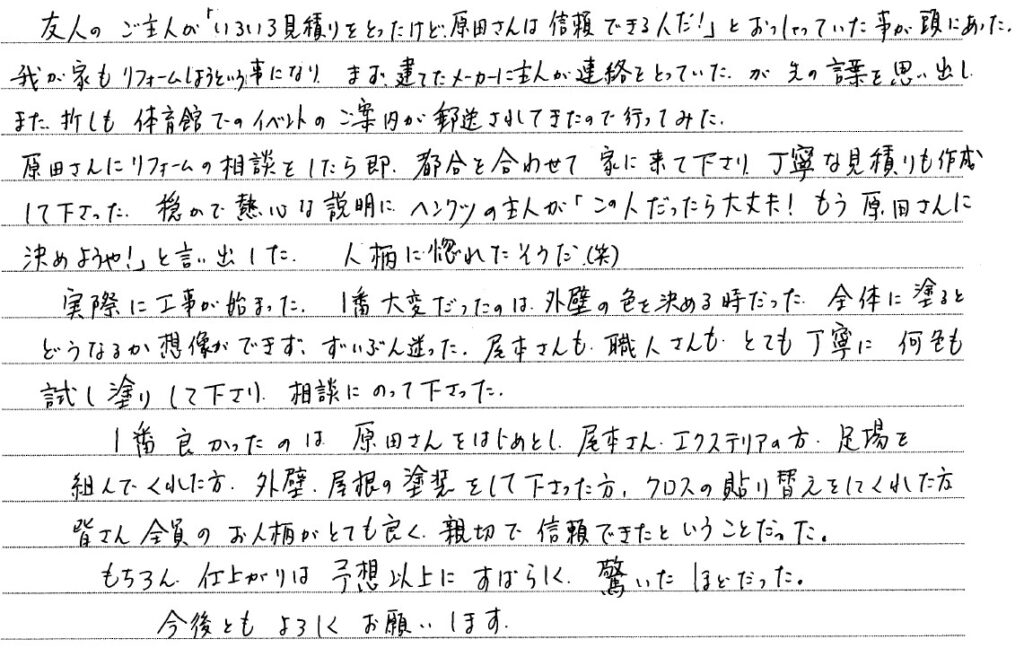 友人の ご主人が「いろいろ見積りをとったけど、原田さんは 信頼できる人だ!」とおっしゃっていた事が頭にあった。
我が家もリフォームしようという事になり、まず、建てたメーカーに主人が連絡をとっていた。が 先の言葉を思い出し、
また、折しも 体育館でのイベントの ご案内が郵送されてきたので行ってみた。
原田さんにリフォームの相談をしたら即、都合を合わせて 家に来て下さり、丁寧な見積りも作成
して下さった。穏かで熱心な説明に ヘンクツの主人が「この人だったら大丈夫! もう 原田さんに
決めようや!」と言い出した。 人柄に惚れたそうだ。(笑)
実際に工事が始まった。1番大変だったのは、外壁の色を決める時だった。全体に塗ると
どうなるか想像ができず、ずいぶん迷った。尾本さんも、職人さんも、とても丁寧に 何色も
試し塗りして下さり、相談にのって下さった。
1番良かったのは 原田さんをはじめとし、尾本さん、エクステリアの方、足場を
組んでくれた方、外壁、屋根の塗装をして下さった方、クロスの貼り替えをしてくれた方
皆さん全員の お人柄がとても良く、親切で 信頼できたということだった。
もちろん、仕上がりは 予想以上に すばらしく、驚いたほどだった。
今後とも よろしく お願いします。